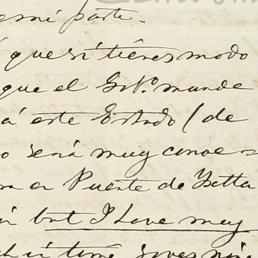 mi parte.
que si tienes modo
que el Gob.º mande
á este Estado (de
será muy conve
en Puente de Ixtla
but I Love my
time